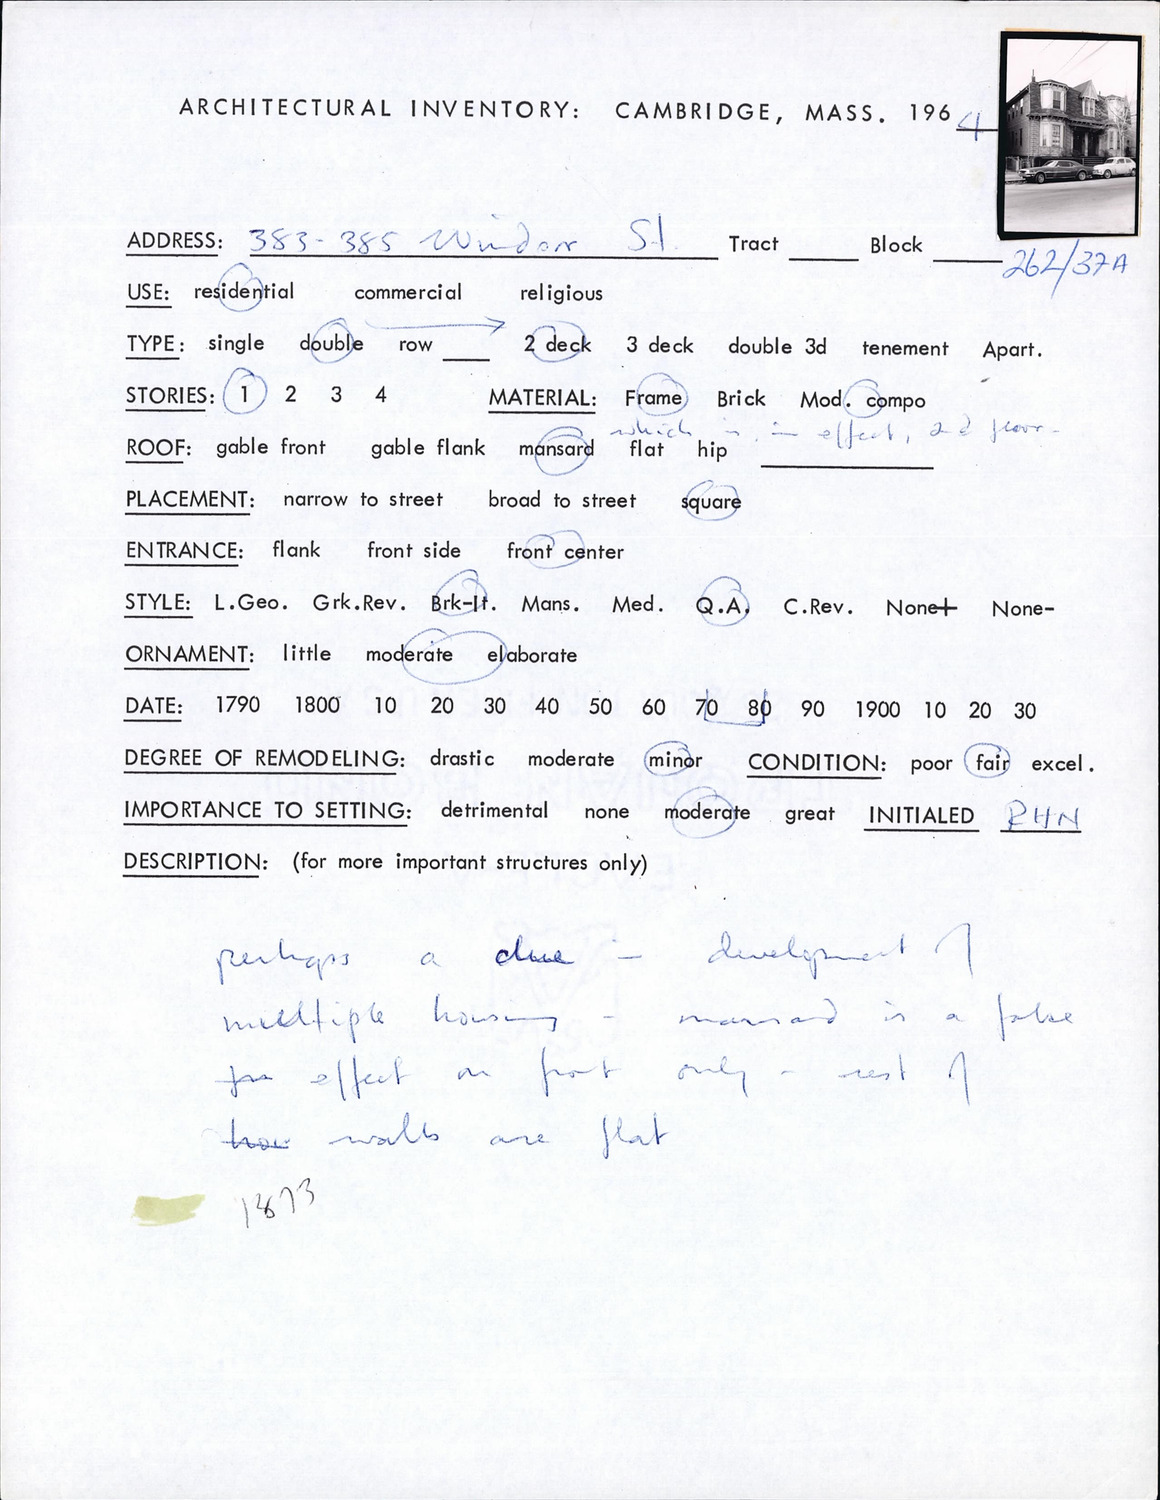 ARCHITECTURAL INVENTORY: CAMBRIDGE, MASS. 1964
ADDRESS: 383-385 Windsor St. Tract ____ Block ____
262/37A
USE: residential commercial religious
TYPE: single double row ____ 2 deck 3 deck double 3d tenement Apart.
STORIES: 1 2 3 4 MATERIAL: Frame Brick Mod. compo
which is, in effect, 2nd floor-
ROOF: gable front gable flank mansard flat hip ____
PLACEMENT: narrow to street broad to street square
ENTRANCE: flank front side front center
STYLE: L.Geo. Grk.Rev. Brk-It. Mans. Med. Q.A. C.Rev. None+ None-
ORNAMENT: little moderate elaborate
DATE: 1790 1800 10 20 30 40 50 60 70 80 90 1900 10 20 30
DEGREE OF REMODELING: drastic moderate minor CONDITION: poor fair excel.
IMPORTANCE TO SETTING: detrimental none moderate great INITIALED RHN
DESCRIPTION: (for more important structures only)
perhaps a clue – development of
multiple housing – mansard is a false
effect on front only – rest of
walls are flat
1873